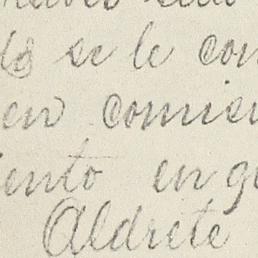 do se le con
en comisi
iento en qu
Aldrete